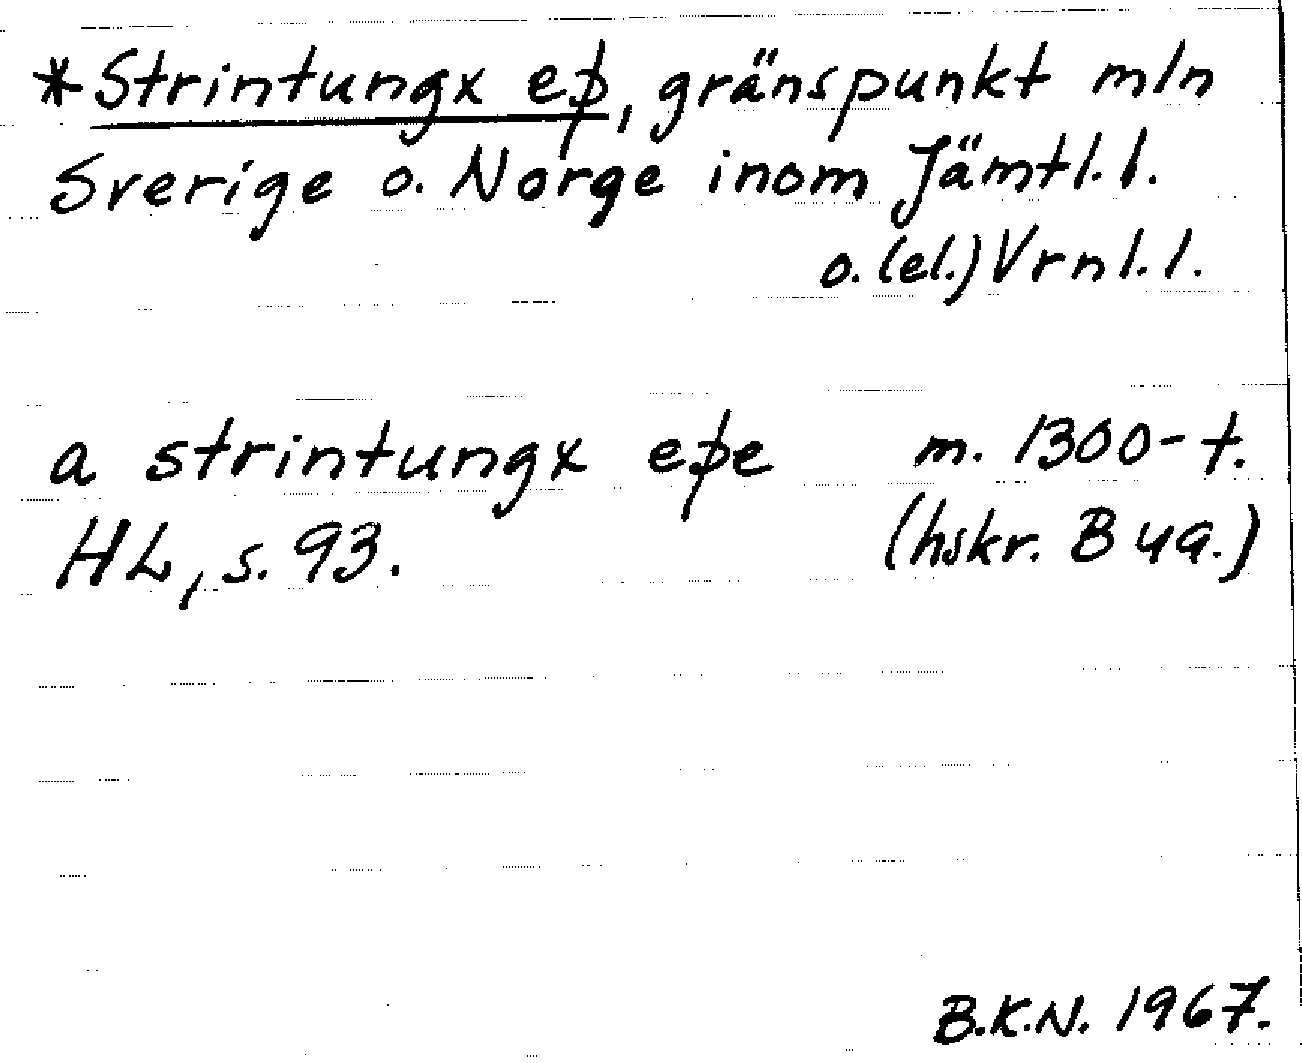 *Strintungx eþ, gränspunkt mln
Sverige o. Norge inom Jämtl. l.
o. (el.) Vrnl. l.
a strintungx eþe m. 1300-t.
HL, s. 93. (hskr. B 49.)
B.K.N. 1967.